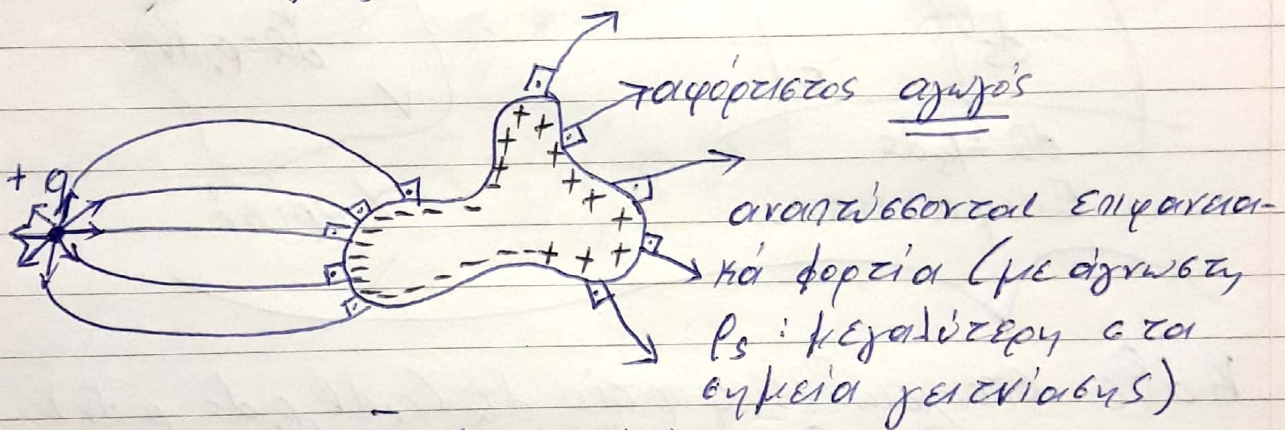 + q
αφόρτιστος αγωγός
αναπτύσσονται επιφανεια-
κά φορτία (με άγνωστη
ρs : μεγαλύτερη στα
σημεία γειτνίασης)